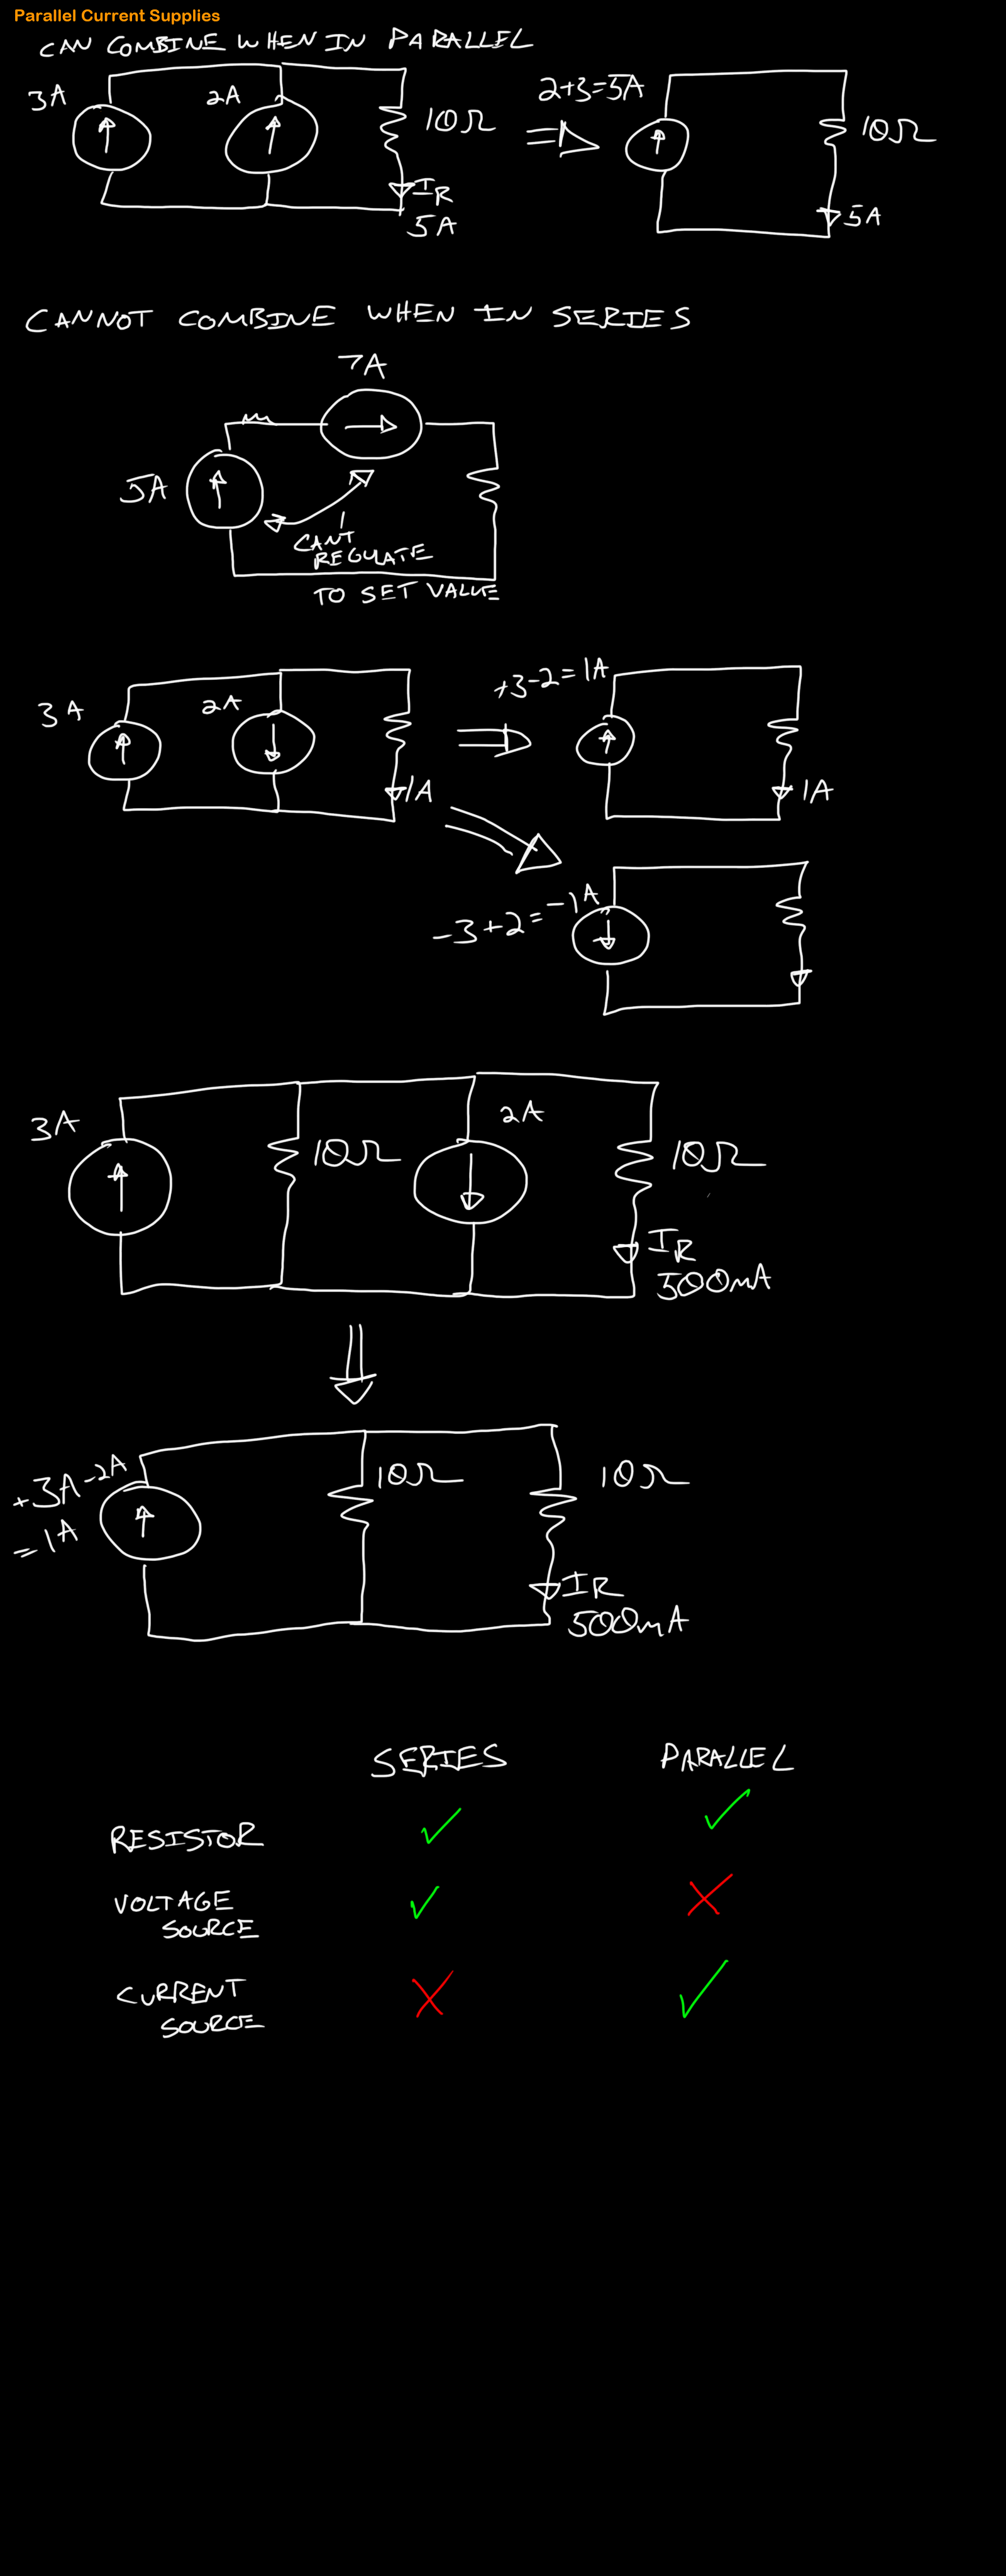 Parallel Current Supplies
CAN COMBINE WHEN IN PARALLEL
3A
2A
10Ω
IR
5A
2+3=5A
10Ω
5A
CANNOT COMBINE WHEN IN SERIES
7A
5A
CANT
REGULATE
TO SET VALUE
3A
2A
1A
+3-2=1A
1A
-3+2=-1A
3A
10Ω
2A
10Ω
IR
500mA
+3A-2A
=1A
10Ω
10Ω
IR
500mA
SERIES PARALLEL
RESISTOR ✓ ✓
VOLTAGE
SOURCE ✓ X
CURRENT
SOURCE X ✓